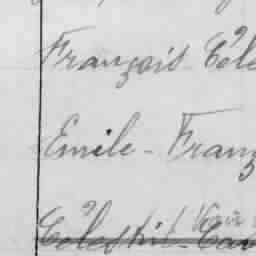 François Céle
Emile - Franç
Célestin - Cam